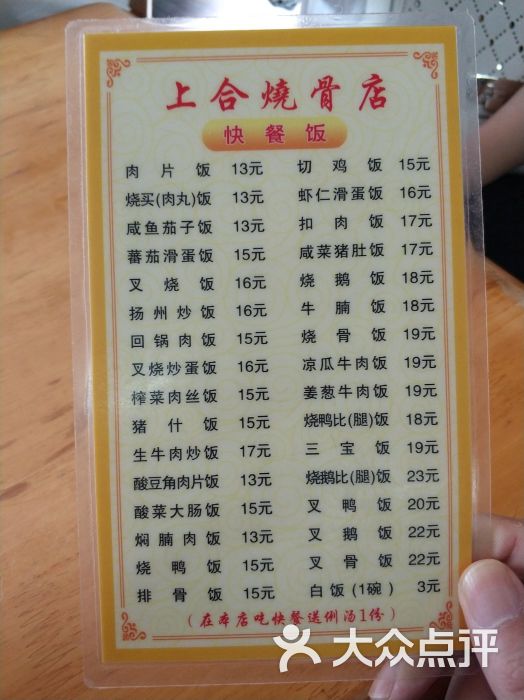 上合燒骨店
快餐饭
肉片饭 13元
烧买(肉丸)饭 13元
咸鱼茄子饭 13元
蕃茄滑蛋饭 15元
叉烧饭 16元
扬州炒饭 16元
回锅肉饭 15元
叉烧炒蛋饭 16元
榨菜肉丝饭 15元
猪什饭 15元
生牛肉炒饭 17元
酸豆角肉片饭 13元
酸菜大肠饭 15元
焖腩肉饭 13元
烧鸭饭 15元
排骨饭 15元
切鸡饭 15元
虾仁滑蛋饭 16元
扣肉饭 17元
咸菜猪肚饭 17元
烧鹅饭 18元
牛腩饭 18元
烧骨饭 19元
凉瓜牛肉饭 19元
姜葱牛肉饭 19元
烧鸭比(腿)饭 18元
三宝饭 19元
烧鹅比(腿)饭 23元
叉鸭饭 20元
叉鹅饭 22元
叉骨饭 22元
白饭(1碗) 3元
(在本店吃快餐送例汤1份)
大众点评